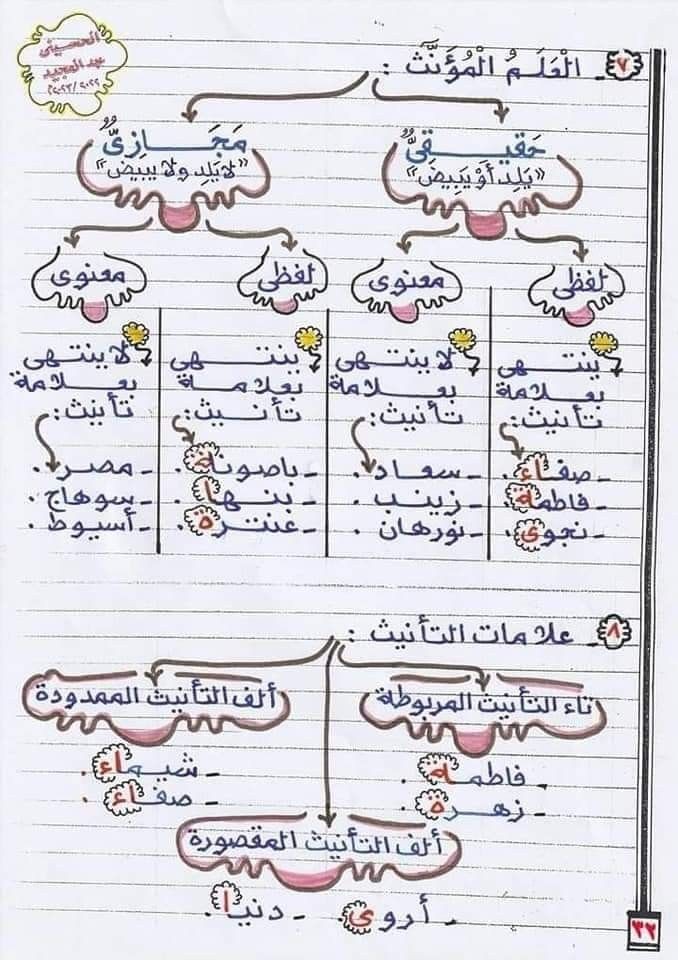 الحسيني
عبد المجيد
٢٠٢٢/٢٠٢٣
٧- الْعَلَمُ الْمُؤَنَّث :
حَقِيقِيٌّ
«يَلِد أَوْ يَبِيض»
مَجَازِيٌّ
«لا يَلِد ولا يبيض»
لفظى
معنوى
لفظى
معنوى
ينتهى
بعلامة
تأنيث:
- صفاء.
- فاطمة.
- نجوى.
لا ينتهى
بعلامة
تأنيث:
- سعاد.
- زينب.
- نورهان.
ينتهى
بعلامة
تأنيث:
- باصونة.
- بنها.
- عنترة.
لا ينتهى
بعلامة
تأنيث:
- مصر.
- سوهاج.
- أسيوط.
٨- علامات التأنيث :
تاء التأنيث المربوطة
- فاطمة.
- زهرة.
ألف التأنيث الممدودة
- شيماء.
- صفاء.
ألف التأنيث المقصورة
- أروى. - دنيا.
٣٢